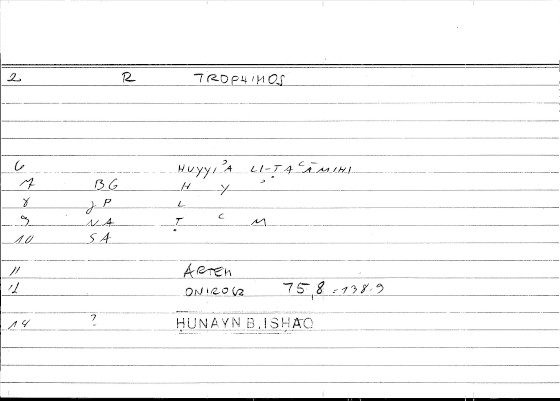 2 R TROPHIMOS
6 HUYYI'A LI-ṬAʿĀMIHI
7 BG H Y ʾ
8 JP L
9 NA Ṭ ʿ M
10 SA
11 ARTEM
12 ONIROCR 75,8 = 138.9
14 ? ḤUNAYN B. ISḤAQ